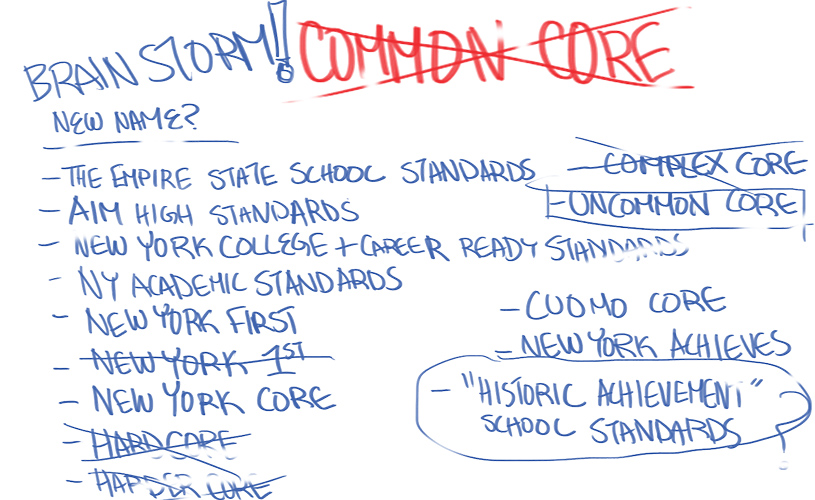 BRAINSTORM! COMMON CORE
NEW NAME?
- THE EMPIRE STATE SCHOOL STANDARDS
- AIM HIGH STANDARDS
- NEW YORK COLLEGE + CAREER READY STANDARDS
- NY ACADEMIC STANDARDS
- NEW YORK FIRST
- NEW YORK 1ST
- NEW YORK CORE
- HARDCORE
- HARDER CORE
- COMPLEX CORE
- UNCOMMON CORE
- CUOMO CORE
- NEW YORK ACHIEVES
- "HISTORIC ACHIEVEMENT"
SCHOOL STANDARDS